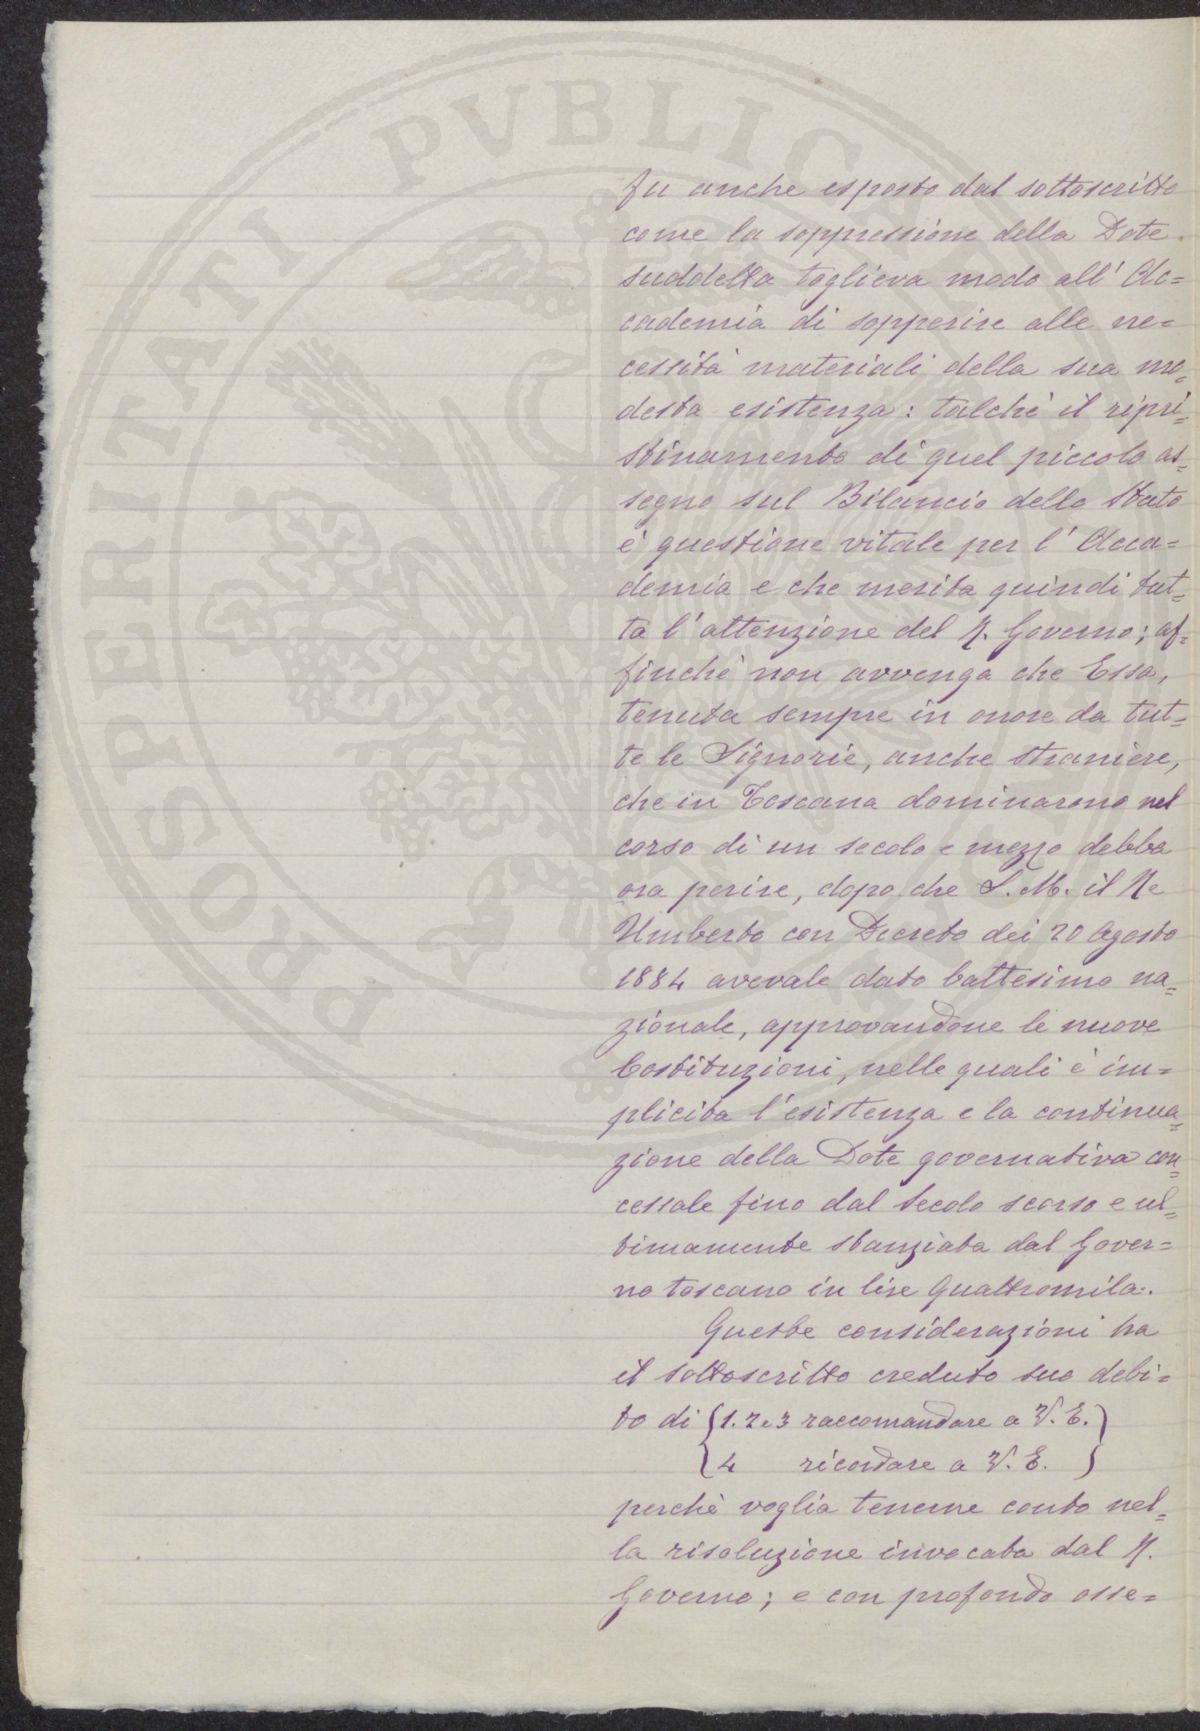 fu anche esposto dal sottoscritto
come la soppressione della Dote
suddetta toglieva modo all' Ac=
cademia di sopperire alle ne=
cessità materiali della sua mo=
desta esistenza: talchè il ripri=
stinamento di quel piccolo as=
segno sul Bilancio dello Stato
è questione vitale per l' Acca=
demia e che merita quindi tut=
ta l'attenzione del R. Governo; af=
finchè non avvenga che Essa,
tenuta sempre in onore da tut=
te le Signorie, anche straniere,
che in Toscana dominarono nel
corso di un secolo e mezzo debba
ora perire, dopo che S. M. il Re
Umberto con Decreto dei 20 Agosto
1884 avevale dato battesimo na=
zionale, approvandone le nuove
Costituzioni, nelle quali è im=
plicita l'esistenza e la continua=
zione della Dote governativa con=
cessale fino dal Secolo scorso e ul=
timamente stanziata dal Gover=
no toscano in lire Quattromila.
Queste considerazioni ha
il sottoscritto creduto suo debi=
to di {1. 2 e 3 raccomandare a V. E.}
{4 ricordare a V. E. }
perchè voglia tenerne conto nel=
la risoluzione invocata dal R.
Governo; e con profondo osse=
PROSPERITATI PVBLICAE